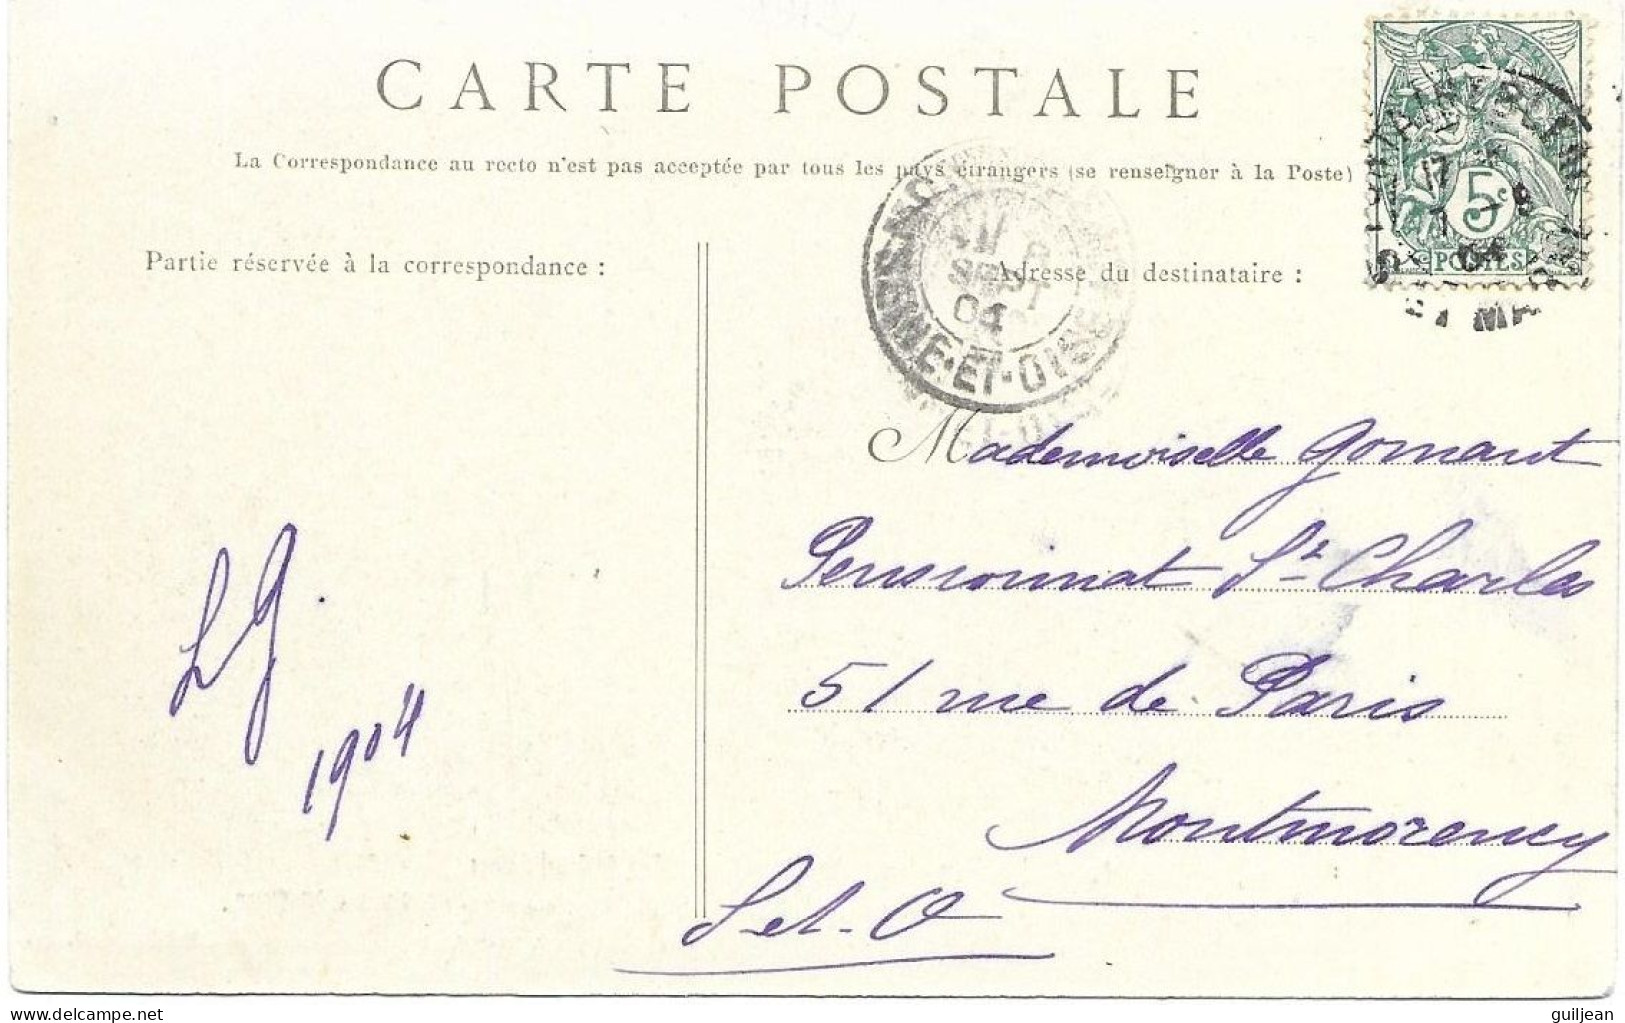 CARTE POSTALE
La Correspondance au recto n'est pas acceptée par tous les pays étrangers (se renseigner à la Poste)
Partie réservée à la correspondance :
Adresse du destinataire :
5c
POSTES
SEPT
04
SEINE-ET-OISE
Mademoiselle Gomant
Pensionnat St Charles
51 rue de Paris
Montmorency
S et-O
LG.
1904
delcampe.net
guiljean